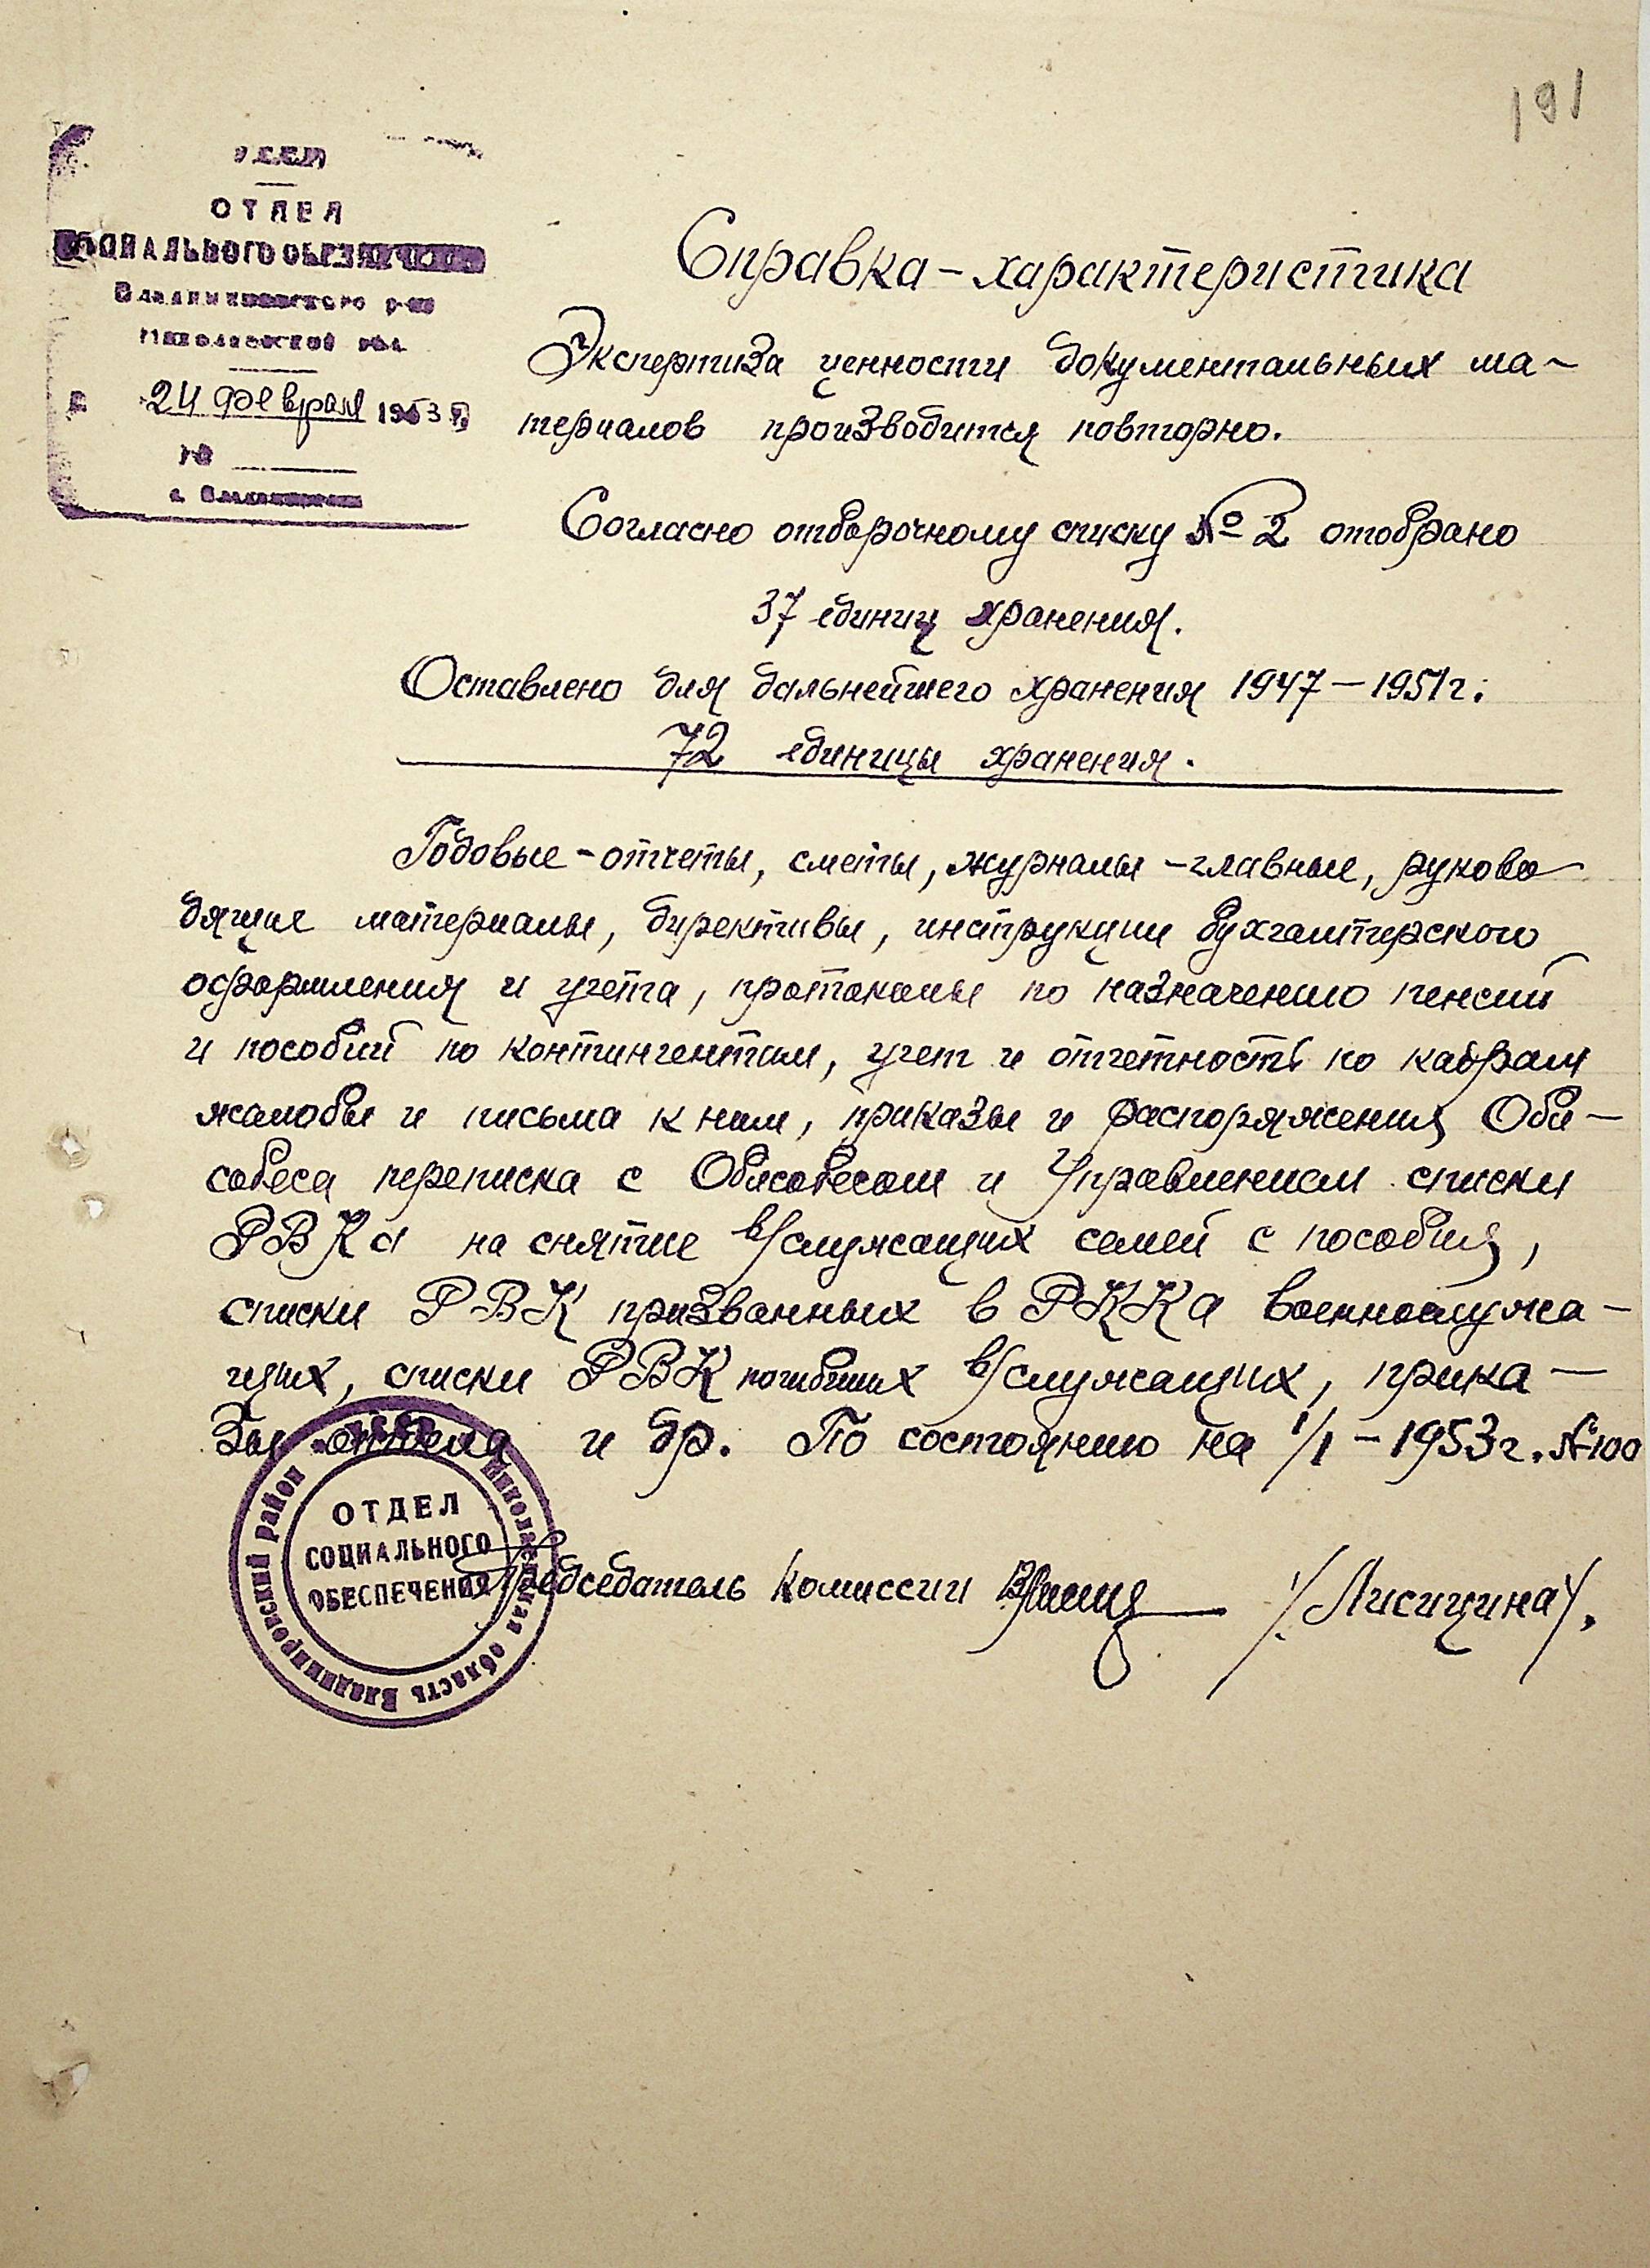 191
УССР
ОТДЕЛ
СОЦИАЛЬНОГО ОБЕСПЕЧЕНИЯ
Владимировского р-на
Николаевской обл.
24 февраля 1953 г.
№
с. Владимировка
Справка-характеристика
Экспертиза ценности документальных ма-
териалов производится повторно.
Согласно отборочному списку № 2 отобрано
37 единиц хранения.
Оставлено для дальнейшего хранения 1947-1951г:
72 единицы хранения.
Годовые-отчеты, сметы, журналы-главные, руково
дящие материалы, директивы, инструкции бухгалтерского
оформления и учета, протоколы по назначению пенсий
и пособий по контингентам, учет и отчетность по кадрам
жалобы и письма к ним, приказы и распоряжения Обл-
собеса переписка с Облсобесом и Управлением списки
РВКа на снятие в/служащих семей с пособия,
списки РВК призванных в РККа военнослужа-
щих, списки РВК погибших в/служащих, прика-
зы отдела и др. По состоянию на 1/1-1953г. №100
Председатель комиссии /Лисицина/.
УССР Николаевская область Владимировский район
ОТДЕЛ
СОЦИАЛЬНОГО
ОБЕСПЕЧЕНИЯ